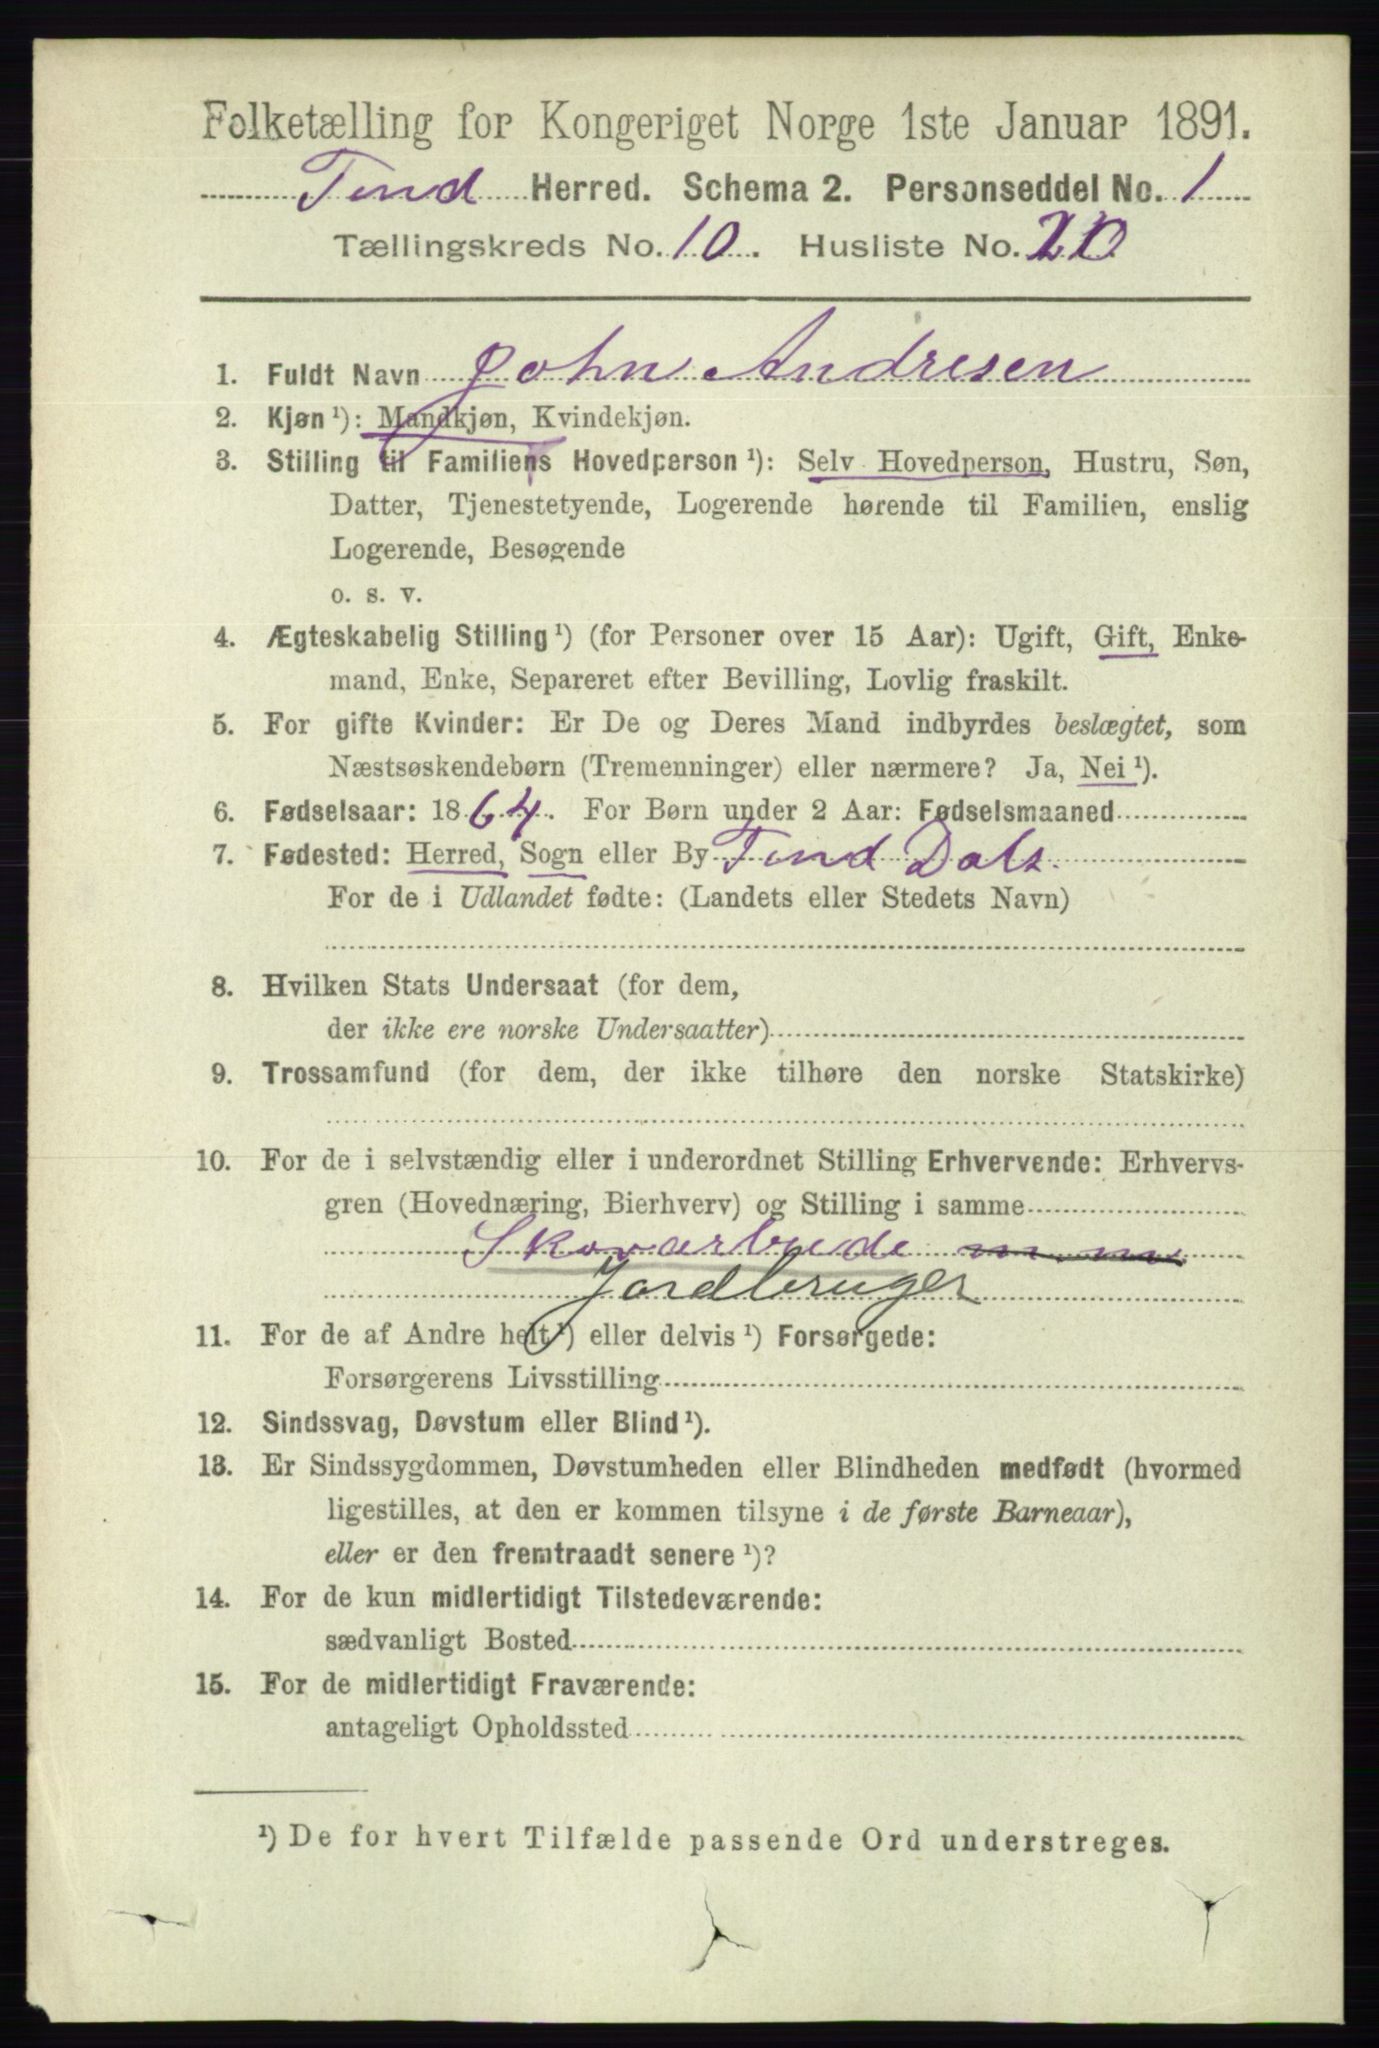 Folketælling for Kongeriget Norge 1ste Januar 1891.
Tind Herred. Schema 2. Personseddel No. 1
Tællingskreds No. 10. Husliste No. 20
1. Fuldt Navn John Andresen
2. Kjøn ¹): Mandkjøn, Kvindekjøn.
3. Stilling til Familiens Hovedperson ¹): Selv Hovedperson, Hustru, Søn,
Datter, Tjenestetyende, Logerende hørende til Familien, enslig
Logerende, Besøgende
o. s. v.
4. Ægteskabelig Stilling ¹) (for Personer over 15 Aar): Ugift, Gift, Enke-
mand, Enke, Separeret efter Bevilling, Lovlig fraskilt.
5. For gifte Kvinder: Er De og Deres Mand indbyrdes beslægtet, som
Næstsøskendebørn (Tremenninger) eller nærmere? Ja, Nei ¹).
6. Fødselsaar: 1864. For Børn under 2 Aar: Fødselsmaaned
7. Fødested: Herred, Sogn eller By Tind Dals
For de i Udlandet fødte: (Landets eller Stedets Navn)
8. Hvilken Stats Undersaat (for dem,
der ikke ere norske Undersaatter)
9. Trossamfund (for dem, der ikke tilhøre den norske Statskirke)
10. For de i selvstændig eller i underordnet Stilling Erhvervende: Erhvervs-
gren (Hovednæring, Bierhverv) og Stilling i samme
Skovarbeide m. m
Jordbruger
11. For de af Andre helt ¹) eller delvis ¹) Forsørgede:
Forsørgerens Livsstilling
12. Sindssvag, Døvstum eller Blind ¹).
13. Er Sindssygdommen, Døvstumheden eller Blindheden medfødt (hvormed
ligestilles, at den er kommen tilsyne i de første Barneaar),
eller er den fremtraadt senere ¹)?
14. For de kun midlertidigt Tilstedeværende:
sædvanligt Bosted
15. For de midlertidigt Fraværende:
antageligt Opholdssted
¹) De for hvert Tilfælde passende Ord understreges.